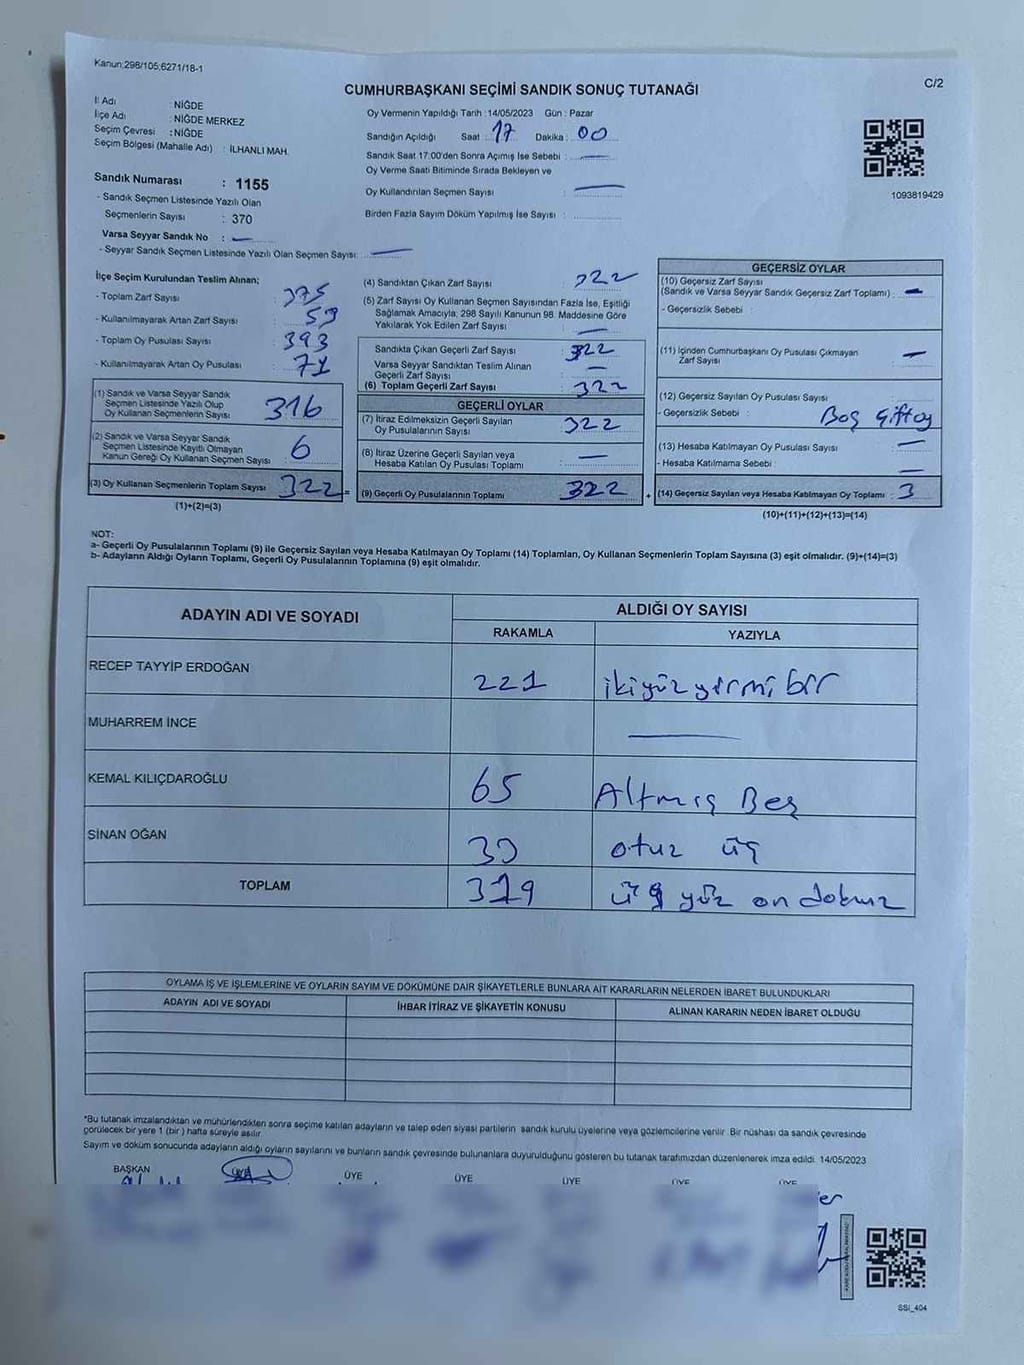 Kanun:298/105;6271/18-1
C/2
CUMHURBAŞKANI SEÇİMİ SANDIK SONUÇ TUTANAĞI
İl Adı : NİĞDE
İlçe Adı : NİĞDE MERKEZ
Seçim Çevresi : NİĞDE
Seçim Bölgesi (Mahalle Adı) : İLHANLI MAH.
Sandık Numarası : 1155
- Sandık Seçmen Listesinde Yazılı Olan
Seçmenlerin Sayısı : 370
Varsa Seyyar Sandık No : —
- Seyyar Sandık Seçmen Listesinde Yazılı Olan Seçmen Sayısı: —
Oy Vermenin Yapıldığı Tarih : 14/05/2023 Gün : Pazar
Sandığın Açıldığı Saat : 17 Dakika : 00
Sandık Saat 17:00'den Sonra Açımış İse Sebebi : —
Oy Verme Saati Bitiminde Sırada Bekleyen ve
Oy Kullandırılan Seçmen Sayısı : —
Birden Fazla Sayım Döküm Yapılmış İse Sayısı :
1093819429
İlçe Seçim Kurulundan Teslim Alınan;
- Toplam Zarf Sayısı : 375
- Kullanılmayarak Artan Zarf Sayısı : 53
- Toplam Oy Pusulası Sayısı : 393
- Kullanılmayarak Artan Oy Pusulası : 71
(1) Sandık ve Varsa Seyyar Sandık
Seçmen Listesinde Yazılı Olup
Oy Kullanan Seçmenlerin Sayısı : 316
(2) Sandık ve Varsa Seyyar Sandık
Seçmen Listesinde Kayıtlı Olmayan
Kanun Gereği Oy Kullanan Seçmen Sayısı : 6
(3) Oy Kullanan Seçmenlerin Toplam Sayısı : 322 =
(1)+(2)=(3)
(4) Sandıktan Çıkan Zarf Sayısı : 322
(5) Zarf Sayısı Oy Kullanan Seçmen Sayısından Fazla İse, Eşitliği
Sağlamak Amacıyla; 298 Sayılı Kanunun 98. Maddesine Göre
Yakılarak Yok Edilen Zarf Sayısı : —
Sandıkta Çıkan Geçerli Zarf Sayısı : 322
Varsa Seyyar Sandıktan Teslim Alınan
Geçerli Zarf Sayısı : —
(6) Toplam Geçerli Zarf Sayısı : 322
GEÇERLİ OYLAR
(7) İtiraz Edilmeksizin Geçerli Sayılan
Oy Pusulalarının Sayısı : 322
(8) İtiraz Üzerine Geçerli Sayılan veya
Hesaba Katılan Oy Pusulası Toplamı : —
(9) Geçerli Oy Pusulalarının Toplamı : 322 +
GEÇERSİZ OYLAR
(10) Geçersiz Zarf Sayısı
(Sandık ve Varsa Seyyar Sandık Geçersiz Zarf Toplamı) : —
- Geçersizlik Sebebi :
(11) İçinden Cumhurbaşkanı Oy Pusulası Çıkmayan
Zarf Sayısı : —
(12) Geçersiz Sayılan Oy Pusulası Sayısı :
- Geçersizlik Sebebi : Boş Çift oy
(13) Hesaba Katılmayan Oy Pusulası Sayısı : —
- Hesaba Katılmama Sebebi : —
(14) Geçersiz Sayılan veya Hesaba Katılmayan Oy Toplamı : 3
(10)+(11)+(12)+(13)=(14)
NOT:
a- Geçerli Oy Pusulalarının Toplamı (9) ile Geçersiz Sayılan veya Hesaba Katılmayan Oy Toplamı (14) Toplamları, Oy Kullanan Seçmenlerin Toplam Sayısına (3) eşit olmalıdır. (9)+(14)=(3)
b- Adayların Aldığı Oyların Toplamı, Geçerli Oy Pusulalarının Toplamına (9) eşit olmalıdır.
ADAYIN ADI VE SOYADI
ALDIĞI OY SAYISI
RAKAMLA YAZIYLA
RECEP TAYYİP ERDOĞAN 221 ikiyüz yirmi bir
MUHARREM İNCE —
KEMAL KILIÇDAROĞLU 65 Altmış Beş
SİNAN OĞAN 33 otuz üç
TOPLAM 319 üç yüz on dokuz
OYLAMA İŞ VE İŞLEMLERİNE VE OYLARIN SAYIM VE DÖKÜMÜNE DAİR ŞİKAYETLERLE BUNLARA AİT KARARLARIN NELERDEN İBARET BULUNDUKLARI
ADAYIN ADI VE SOYADI İHBAR İTİRAZ VE ŞİKAYETİN KONUSU ALINAN KARARIN NEDEN İBARET OLDUĞU
*Bu tutanak imzalandıktan ve mühürlendikten sonra seçime katılan adayların ve talep eden siyasi partilerin sandık kurulu üyelerine veya gözlemcilerine verilir. Bir nüshası da sandık çevresinde
görülecek bir yere 1 (bir) hafta süreyle asılır.
Sayım ve döküm sonucunda adayların aldığı oyların sayılarını ve bunların sandık çevresinde bulunanlara duyurulduğunu gösteren bu tutanak tarafımızdan düzenlenerek imza edildi. 14/05/2023
BAŞKAN ÜYE ÜYE ÜYE ÜYE ÜYE
SSI_404